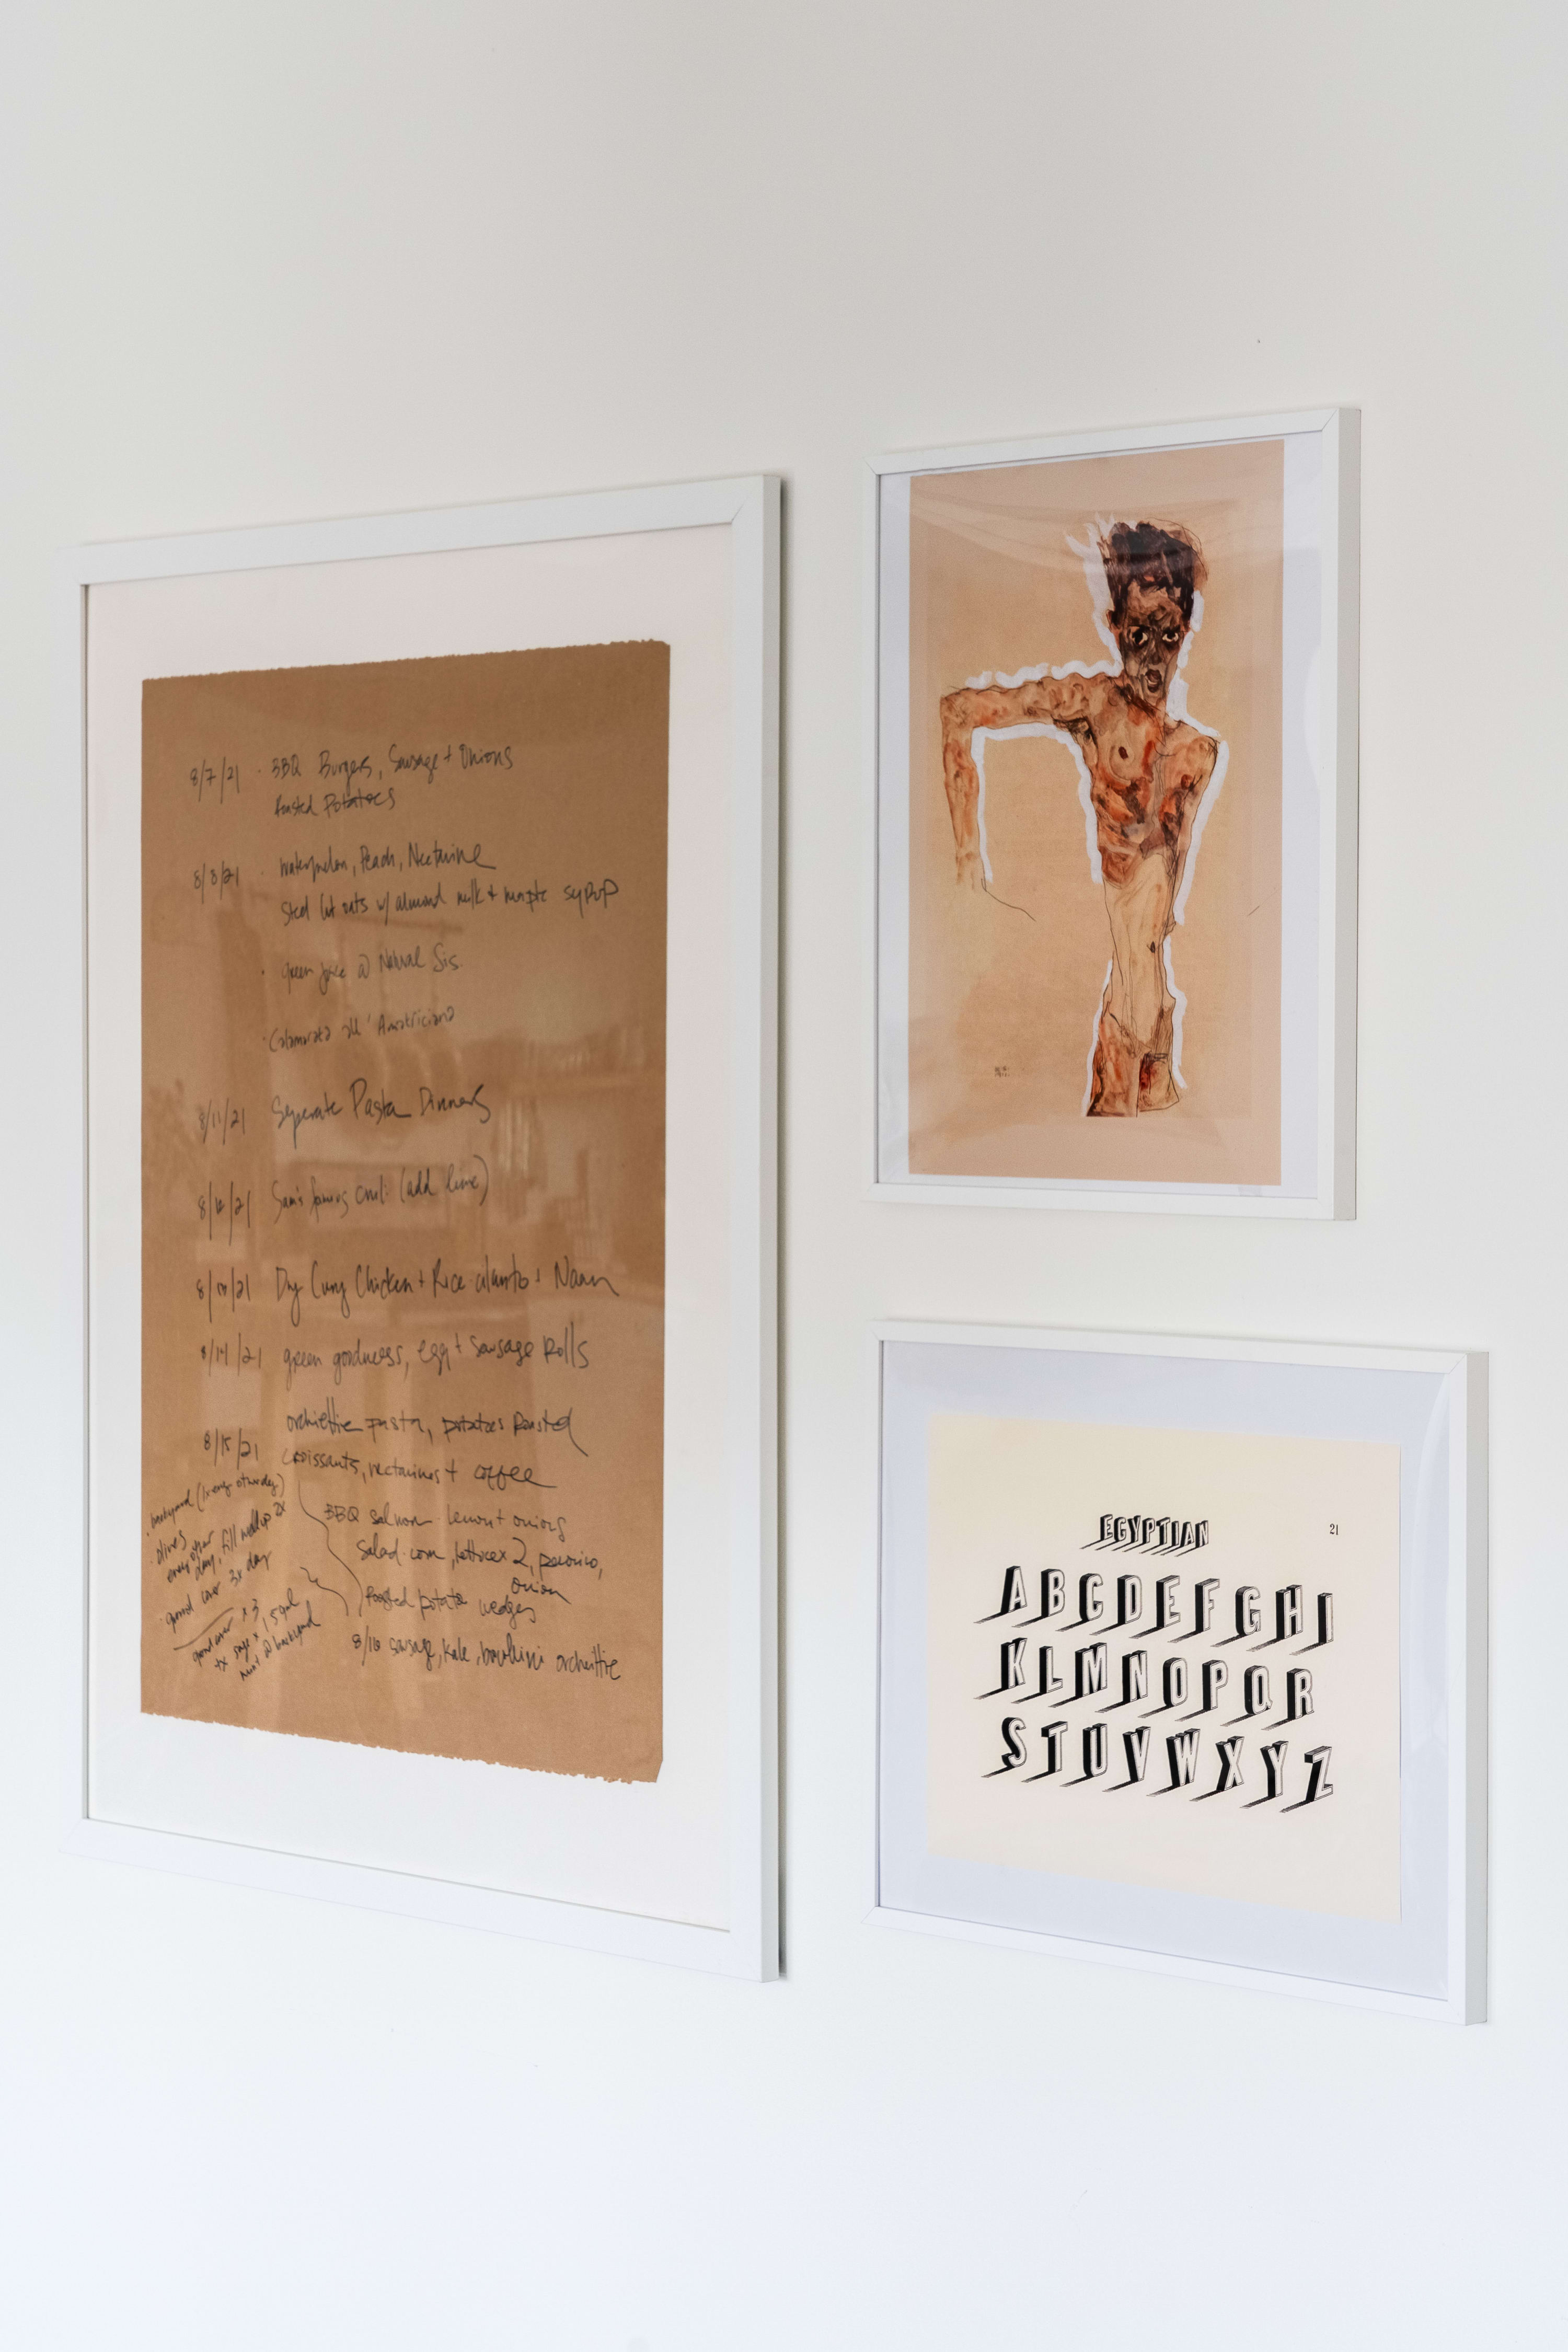 8/7/21 · BBQ Burgers, Sausage + Onions
Roasted Potatoes
8/8/21 · Watermelon, Peach, Nectarine
Steel Cut oats w/ almond milk + maple syrup
· green juice @ Natural Sis.
· Calamarata all' Amatriciana
8/11/21 Seperate Pasta Dinners
8/12/21 Sam's famous chili (add lime)
8/13/21 Dry Curry Chicken + Rice · cilantro + Naan
8/14/21 green goodness, egg + sausage Rolls
orchiettie pasta, potatoes Roasted
8/15/21 Croissants, nectarines + coffee
BBQ salmon · lemon + onions
Salad · corn, lettuce x 2, pecorino,
onion
Roasted potato wedges
8/16 sausage, kale, orchiettie
· backyard (1x every other day)
· olives
every other
day, fill well up 2x
· ground cover 3x day
ground cover x 3
x 1.5 gal
@ backyard
EGYPTIAN
21
ABCDEFGHI
KLMNOPQR
STUVWXYZ